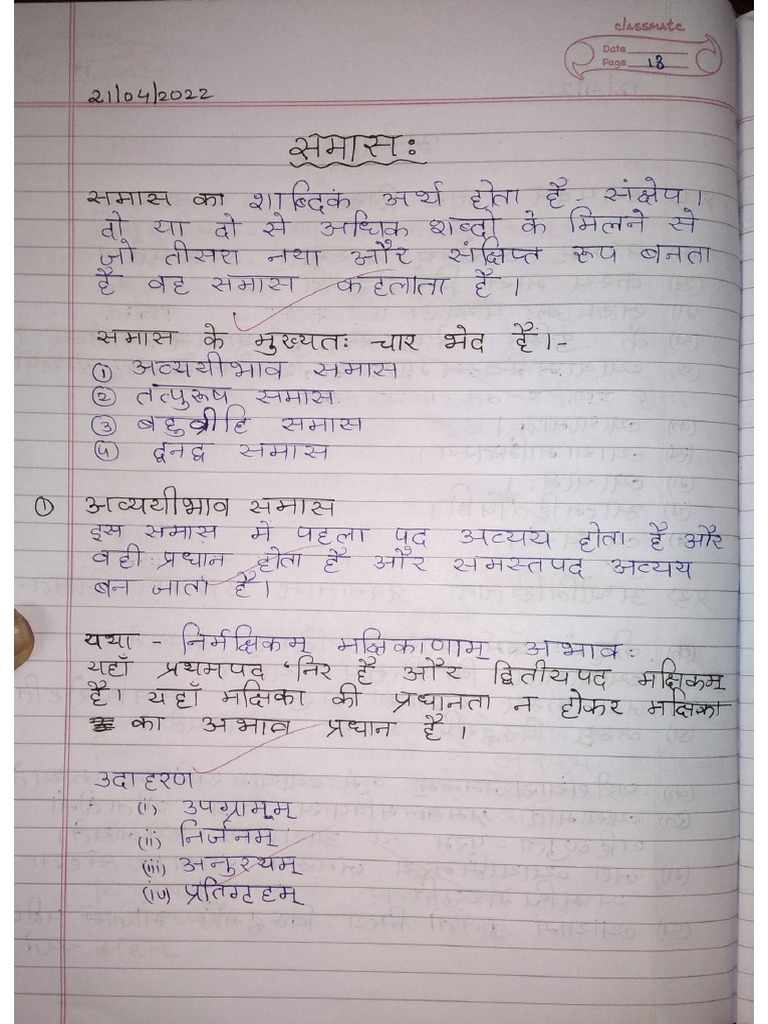 classmate
Date
Page 18
21/04/2022
समासः
समास का शाब्दिक अर्थ होता है - संक्षेप।
दो या दो से अधिक शब्दों के मिलने से
जो तीसरा नया और संक्षिप्त रूप बनता
है वह समास कहलाता है।
समास के मुख्यतः चार भेद हैं।-
① अव्ययीभाव समास
② तत्पुरूष समास
③ बहुव्रीहि समास
④ द्वनद्व समास
① अव्ययीभाव समास
इस समास में पहला पद अव्यय होता है और
वही प्रधान होता है और समस्तपद अव्यय
बन जाता है।
यथा - निर्मक्षिकम् मक्षिकाणाम् अभावः
यहाँ प्रथमपद 'निर है और द्वितीयपद मक्षिकम्
है। यहाँ मक्षिका की प्रधानता न होकर मक्षिका
का अभाव प्रधान है।
उदाहरण
(i) उपग्रामम्
(ii) निर्जनम्
(iii) अनुरथम्
(iv) प्रतिगृहम्